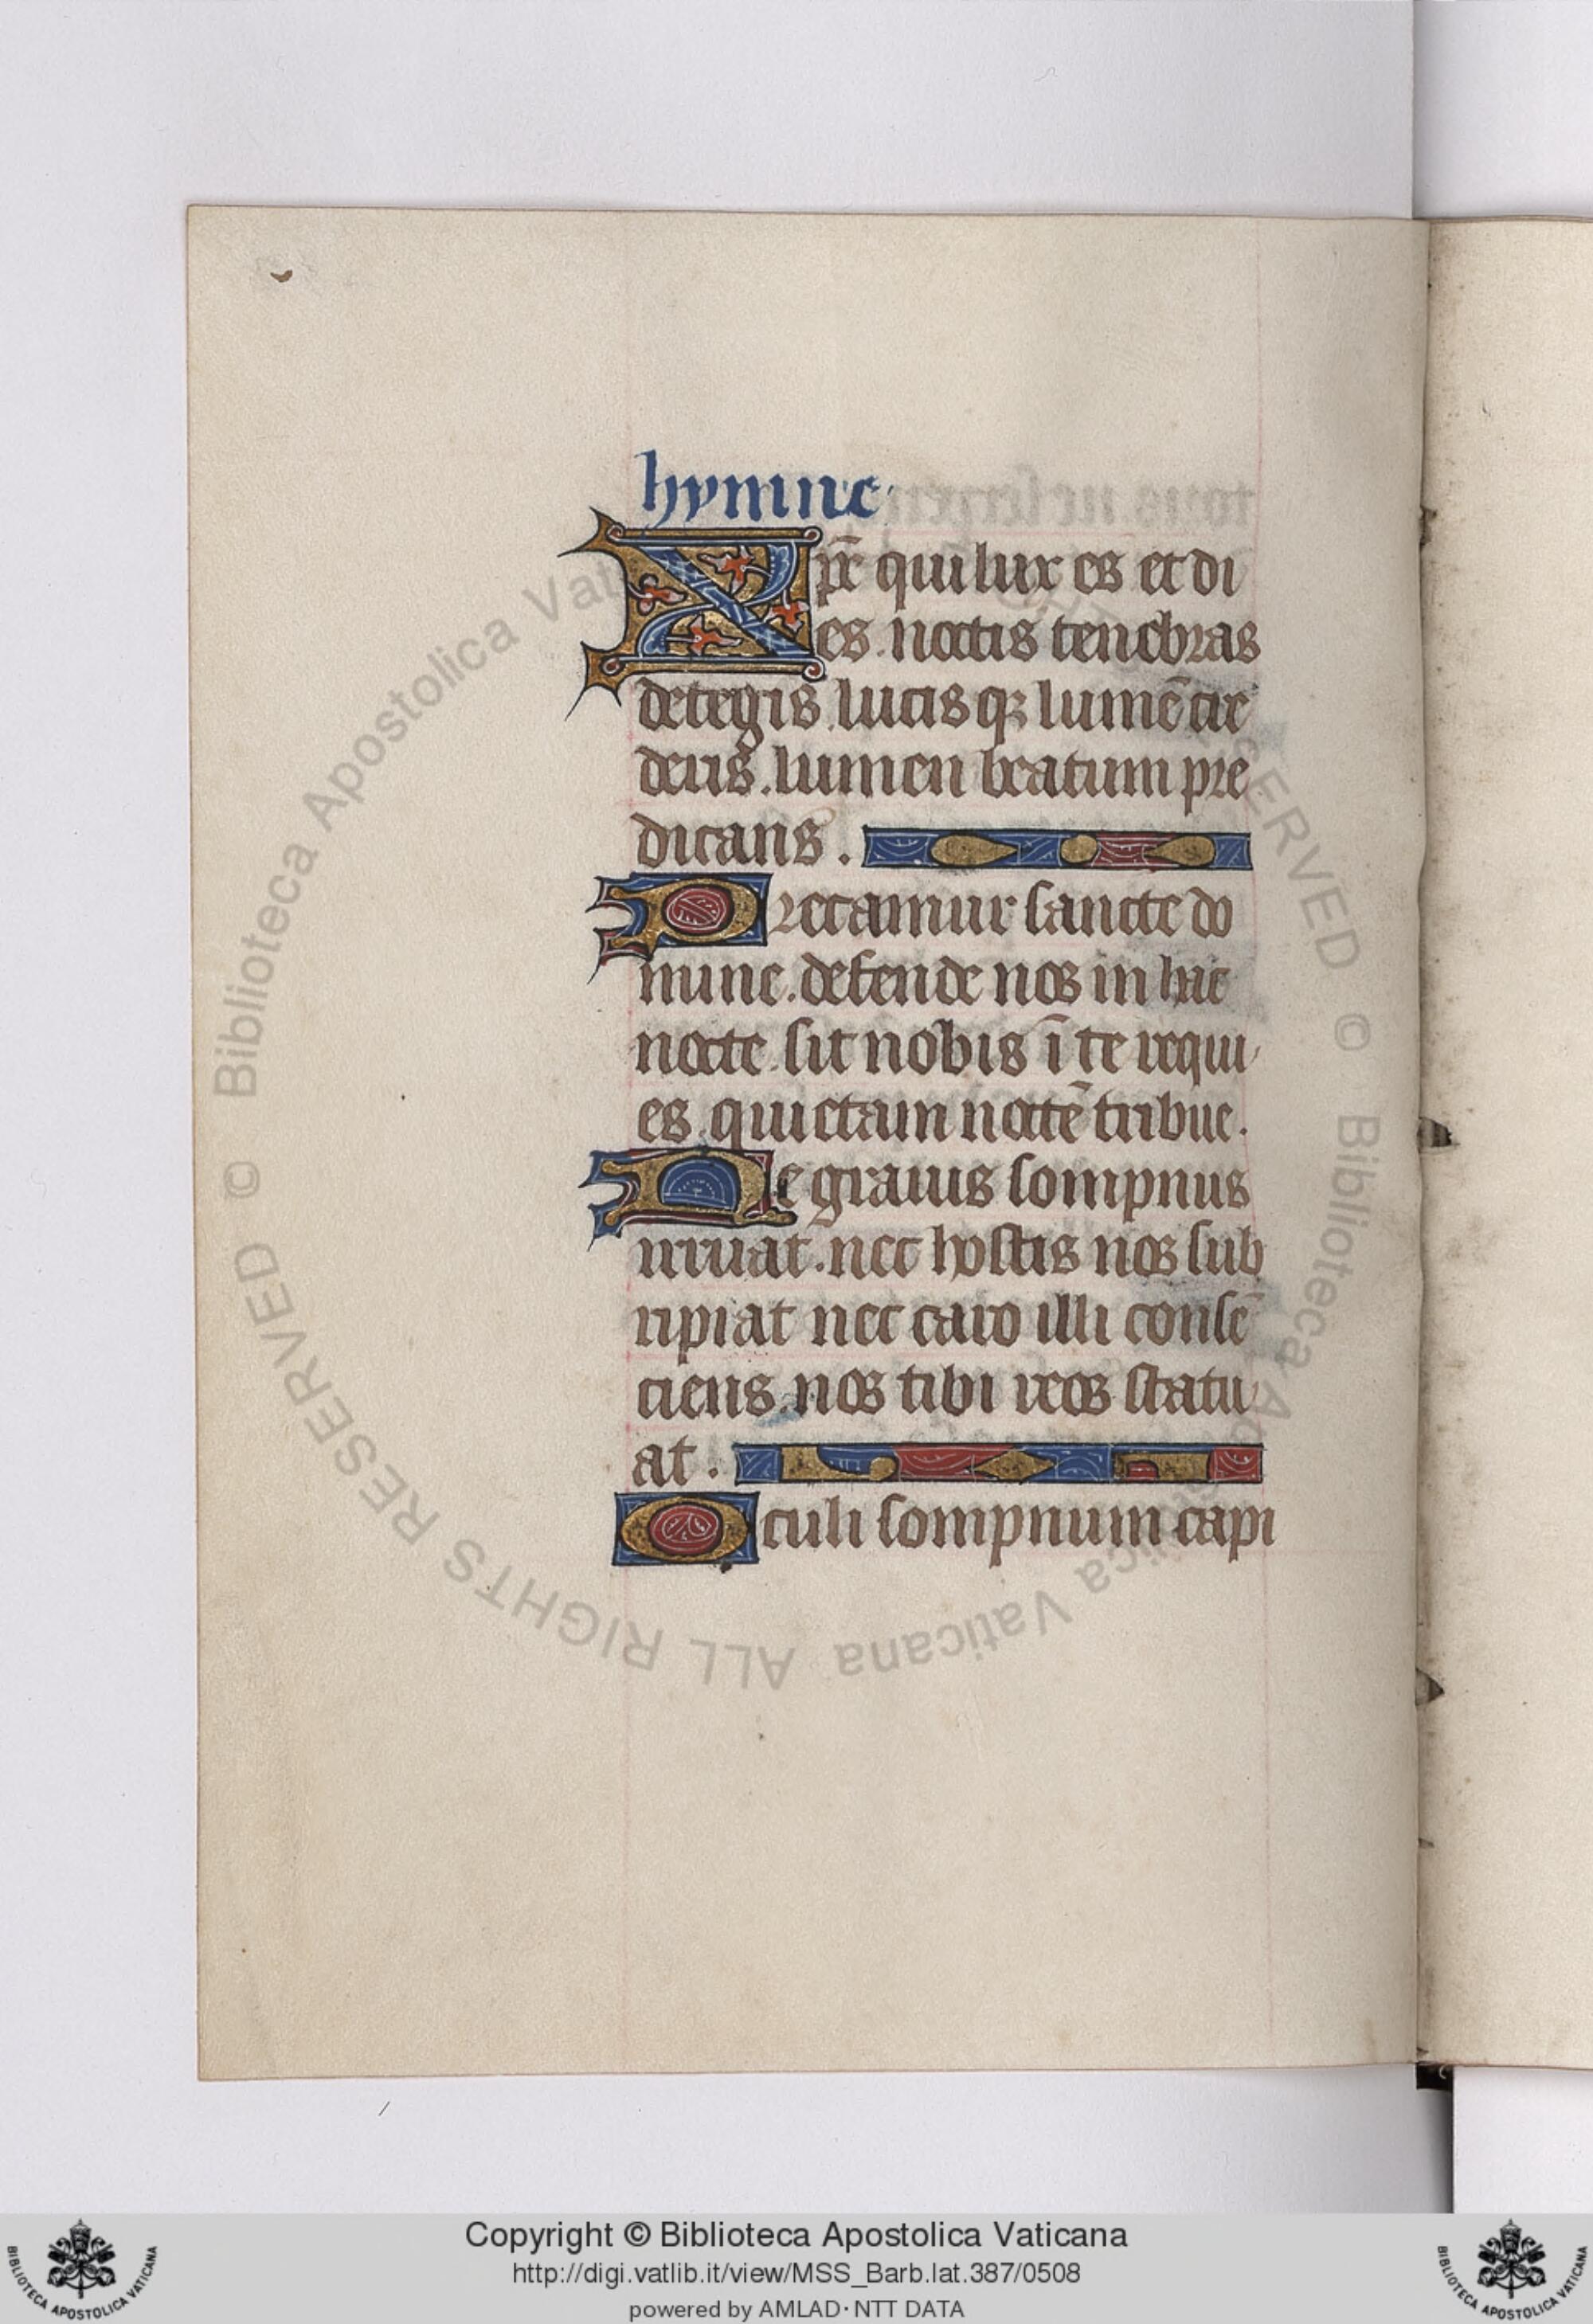 hymne
Xpē qui lux es et di
es. noctis tenebras
detegis. lucisqꝫ lumē cre
deris. lumen beatum pre
dicans.
Precamur sancte do
mine. defende nos in hac
nocte. sit nobis ī te requi
es. quietam noctē tribue.
Ne grauis sompnus
irruat. nec hostis nos sub
ripiat nec caro illi consē
ciens. nos tibi reos statu
at.
Oculi sompnum capi
© Biblioteca Apostolica Vaticana ALL RIGHTS RESERVED
Copyright © Biblioteca Apostolica Vaticana
http://digi.vatlib.it/view/MSS_Barb.lat.387/0508
powered by AMLAD · NTT DATA
BIBLIOTECA APOSTOLICA VATICANA
BIBLIOTECA APOSTOLICA VATICANA